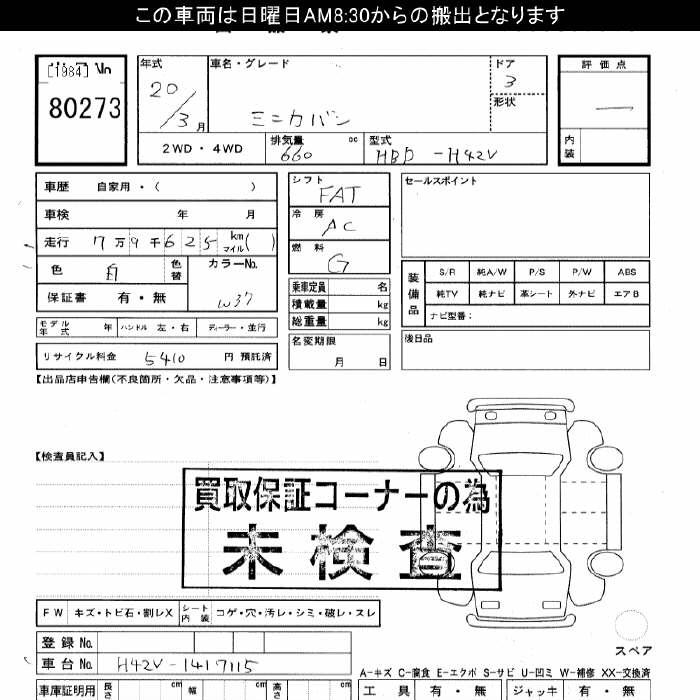 この車両は日曜日AM8:30からの搬出となります
[1984]
80273
年式
20/3月
車名・グレード
ミニカバン
ドア
3
形状
評価点
内装
2WD・4WD
排気量
660
cc
型式
HBD-H42V
車歴 自家用・( )
車検 年 月
走行 7万9千625 km マイル( )
色 白 色替
カラーNo.
W37
保証書 有・無
モデル年式 年 ハンドル 左・右 ディーラー・並行
リサイクル料金 5410 円 預託済
シフト
FAT
冷房
AC
燃料
G
乗車定員 名
積載量 kg
総重量 kg
名変期限
月 日
セールスポイント
装備品
S/R 純A/W P/S P/W ABS
純TV 純ナビ 革シート 外ナビ エアB
ナビ型番:
後日品
【出品店申告欄(不良箇所・欠品・注意事項等)】
【検査員記入】
買取保証コーナーの為
未検査
FW キズ・トビ石・割レX シート内装 コゲ・穴・汚レ・シミ・破レ・スレ
登録No.
車台No. H42V-1417115
スペア
A-キズ C-腐食 E-エクボ S-サビ U-凹ミ W-補修 XX-交換済
車庫証明用 長さ cm 幅 cm 高さ cm
工具 有・無 ジャッキ 有・無